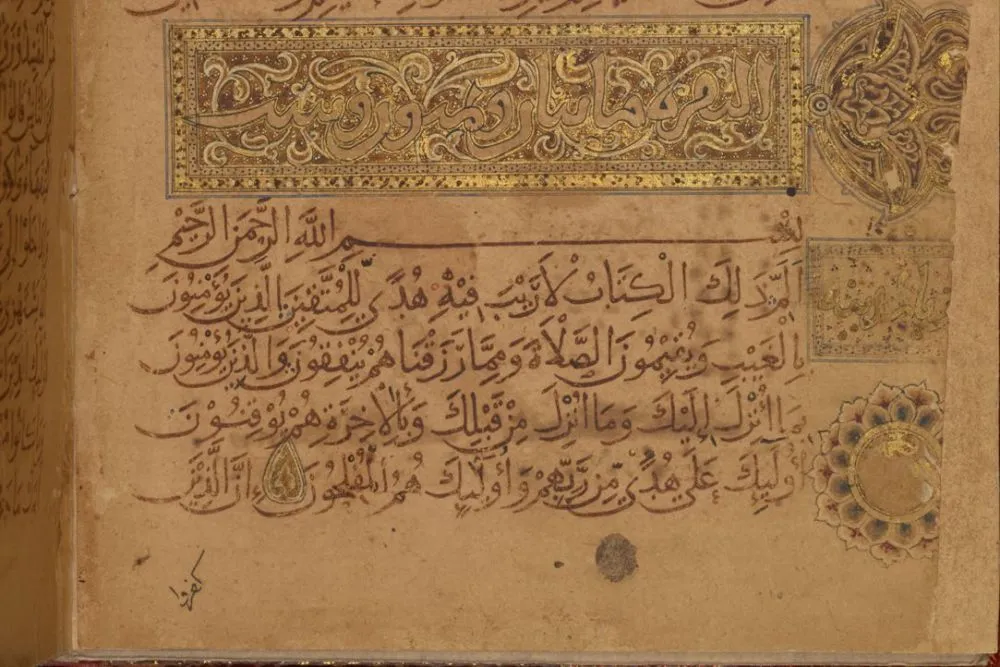 البقره مايتان وثمنون وست
بِسْمِ اللَّهِ الرَّحْمَنِ الرَّحِيْمِ
الَمّ ذَلِكَ الْكِتَابُ لَا رَيْبَ فِيْهِ هُدًى لِلْمُتَّقِيْنَ الَّذِيْنَ يُؤْمِنُوْنَ
بِالْغَيْبِ وَيُقِيْمُونَ الصَّلَاةَ وَمِمَّا رَزَقْنَاهُمْ يُنْفِقُوْنَ وَالَّذِيْنَ يُؤْمِنُوْنَ
بِمَا أُنْزِلَ إِلَيْكَ وَمَا أُنْزِلَ مِنْ قَبْلِكَ وَبِالْآخِرَةِ هُمْ يُوْقِنُوْنَ
أُولَئِكَ عَلَى هُدًى مِّن رَّبِّهِمْ وَأُولَئِكَ هُمُ الْمُفْلِحُوْنَ إِنَّ الَّذِيْنَ
كفروا